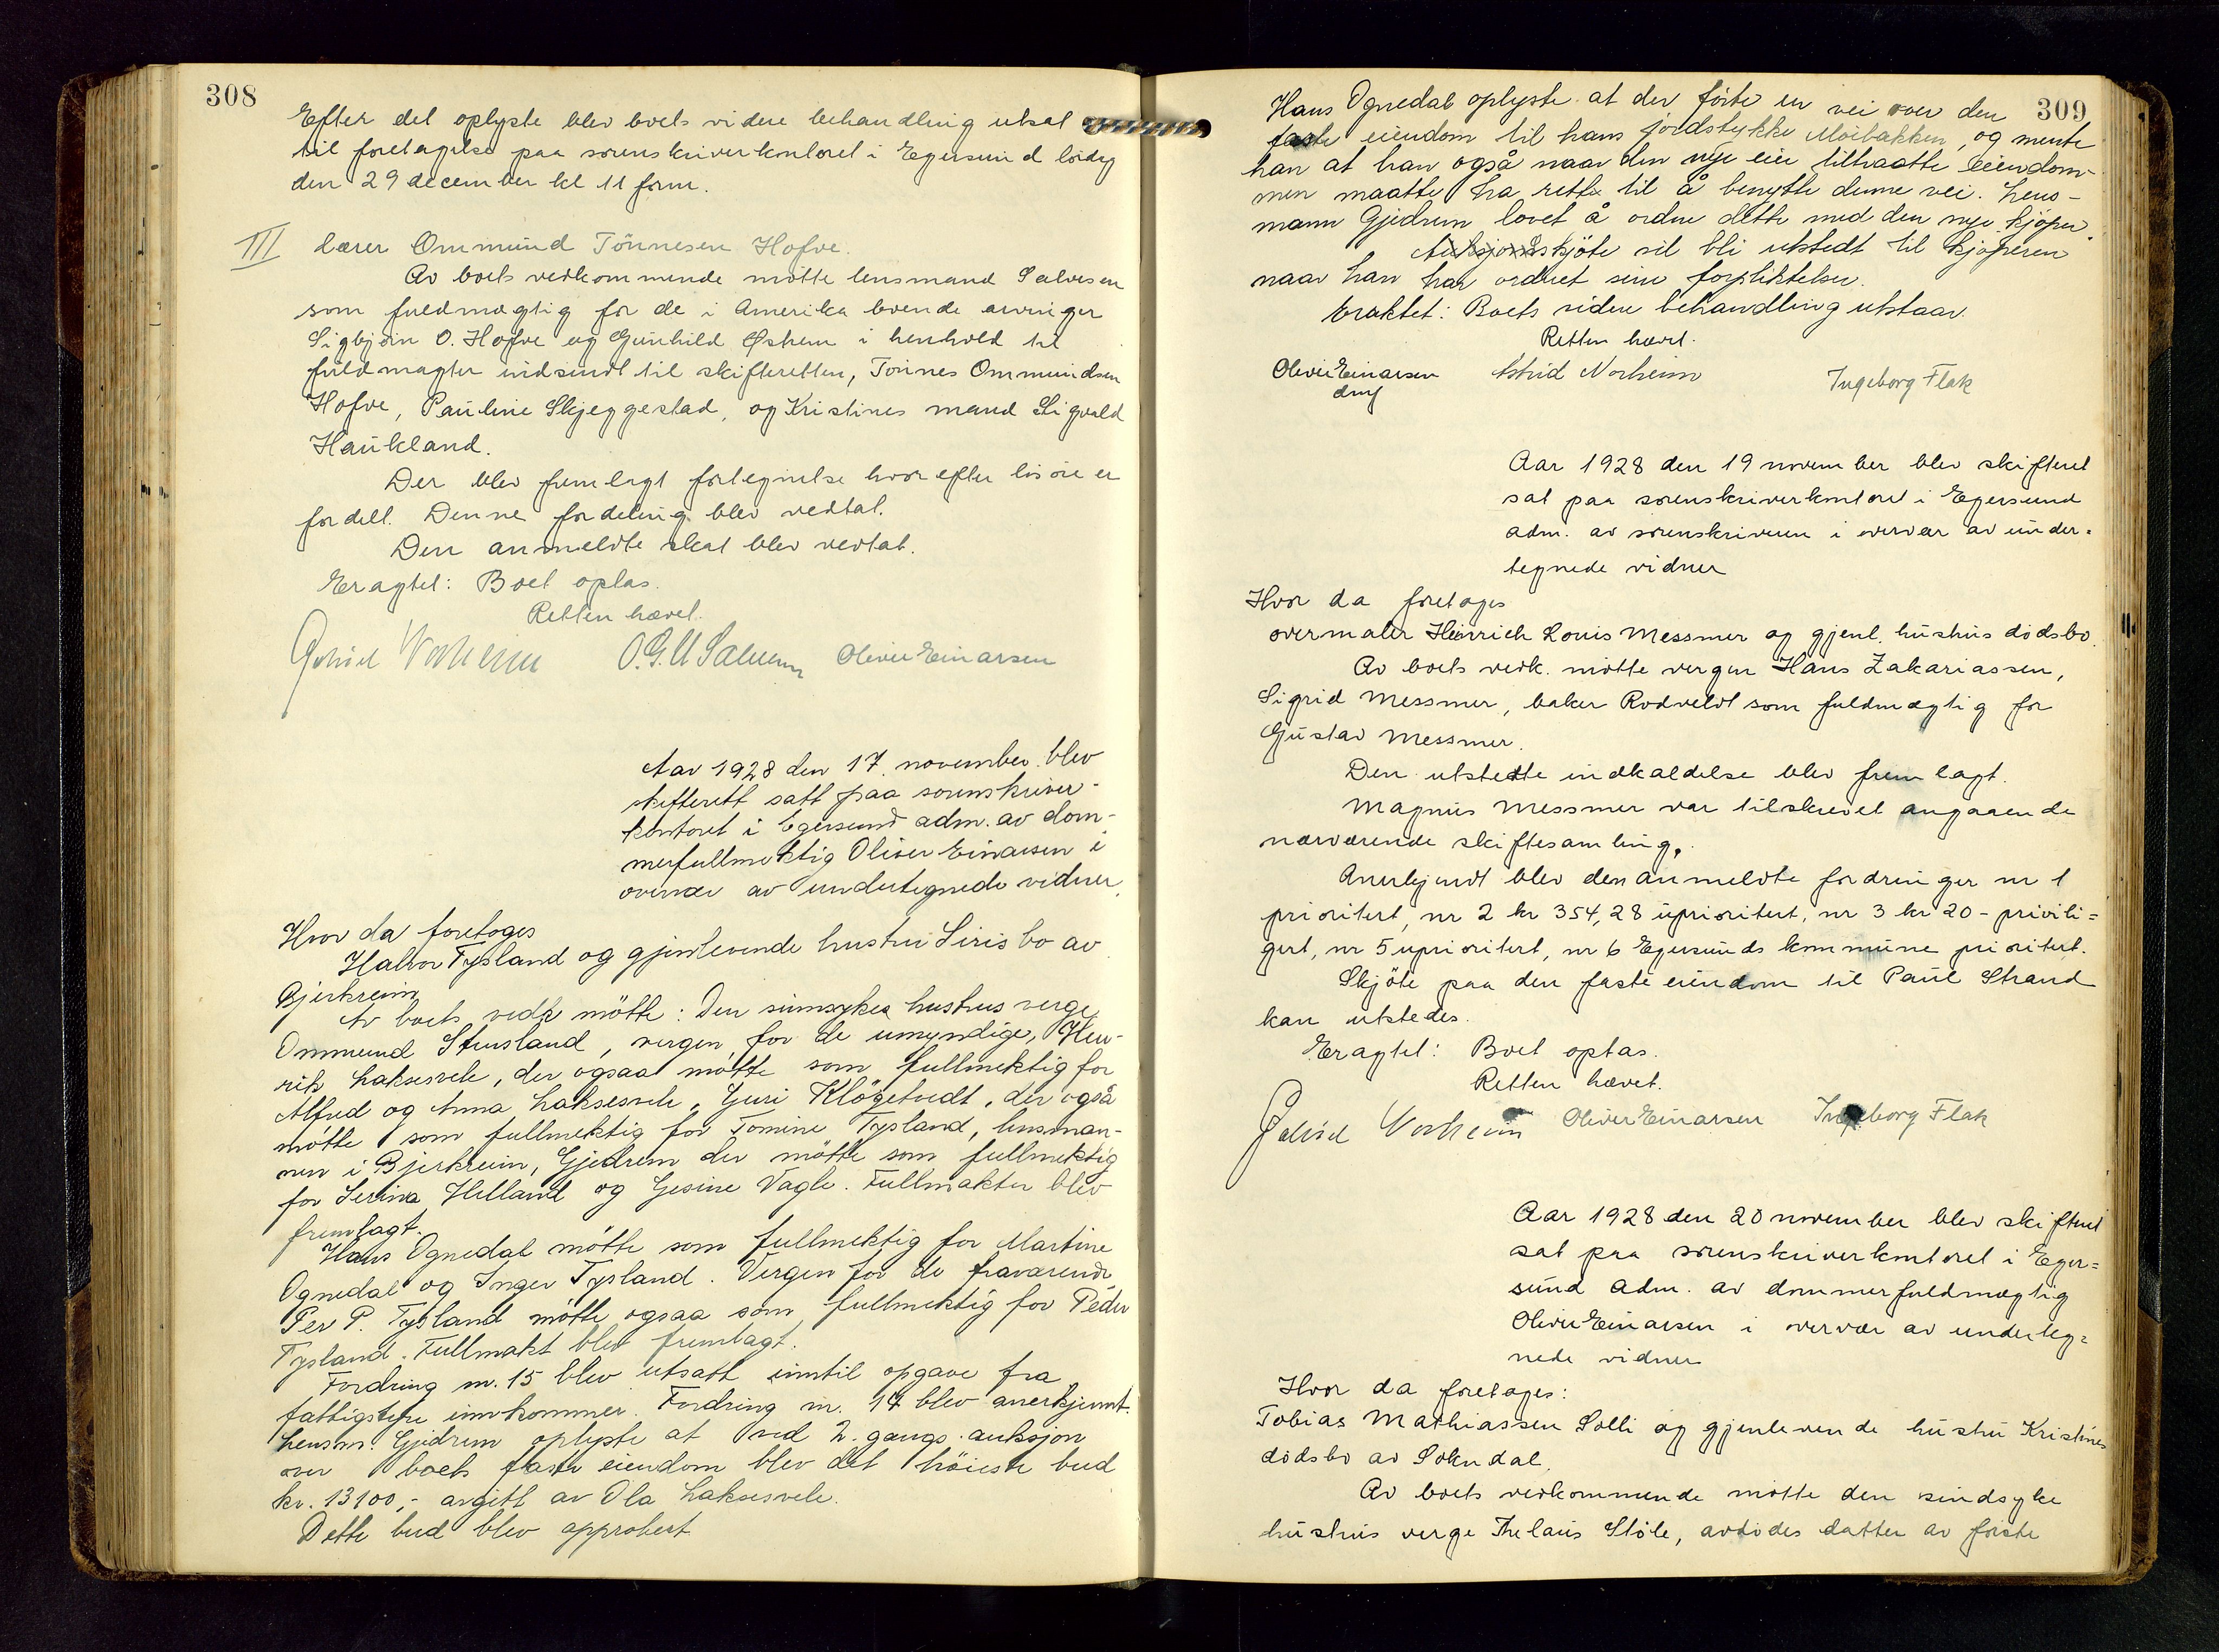 308
Efter det oplyste blev boets videre behandling utsat
til foretagelse paa sorenskriverkontoret i Egersund lördag
den 29 december kl 11 form.
III lærer Ommund Tönnesen Hofve.
Av boets vedkommende mötte lensmand Salvesen
som fuldmægtig for de i Amerika boende arvinger
Sigbjörn O. Hofve og Gunhild Östrem i henhold til
fuldmagter indsendt til skifteretten, Tönnes Ommundsen
Hofve, Pauline Skjeggestad, og Kristines mand Sigvald
Haukland.
Der blev fremlagt fortegnelse hvorefter lösöre er
fordelt. Denne fordeling blev vedtat.
Den anmeldte skat blev vedtat.
Eragtet: Boet optas.
Retten hævet.
Astrid Norheim O.G.U Salvesen Oliver Einarsen
Aar 1928 den 17. november blev
skifterett satt paa sorenskriver-
kontoret i Egersund adm. av dom-
merfullmektig Oliver Einarsen i
overvær av undertegnede vidner.
Hvor da foretoges
Halvor Tysland og gjenlevende hustru Siris bo av
Bjerkreim
Av boets vedk mötte: Den sinnsykes hustrus verge
Ommund Stensland, vergen for de umyndige, Hen-
rik Laksesvele, der ogsaa mötte som fullmektig for
Alfred og Anna Laksesvele, Guri Klögetvedt, der også
mötte som fullmektig for Tomine Tysland, lensman-
nen i Bjerkreim, Gjedrem der mötte som fullmektig
for Serina Helland og Gesine Vagle. Fullmakter blev
fremlagt.
Hans Ognedal mötte som fullmektig for Martine
Ognedal og Inger Tysland. Vergen for de fraværende
Per P. Tysland mötte ogsaa som fullmektig for Peder
Tysland. Fullmakt blev fremlagt.
Fordring nr. 15 blev utsatt inntil opgave fra
fattigstyre innkommer. Fordring nr. 14 blev anerkjennt.
Lensm. Gjedrem oplyste at ved 2. gangs auksjon
over boets faste eiendom blev det höieste bud
kr. 13100,- avgitt av Ola Laksesvele.
Dette bud blev approbert
309
Hans Ognedal oplyste at der förte en vei over den
faste eiendom til hans jordstykke Moibakken, og mente
han at han også naar den nye eier tiltraatte eiendom-
men maatte ha rette til å benytte denne vei. Lens-
mann Gjedrem lovet å ordne dette med den nye kjöper.
Auksjonsskjöte vil bli utstedt til kjöperen
naar han har ordnet sine forpliktelser.
Eraktet: Boets videre behandling utstaar.
Retten hævet.
Oliver Einarsen Astrid Norheim Ingeborg Flak
dmf
Aar 1928 den 19 november blev skifteret
sat paa sorenskriverkontoret i Egersund
adm. av sorenskriveren i overvær av under=
tegnede vidner
Hvor da foretoges
overmaler Heinrich Louis Messmer og gjenl. hustrus dödsbo.
Av boets vedk. mötte vergen Hans Zakariassen,
Sigrid Messmer, baker Rodveldt som fuldmægtig for
Gustav Messmer.
Den utstedte indkaldelse blev fremlagt.
Magnus Messmer var tilskrevet angaaende
nærværende skiftesamling.
Anerkjendt blev den anmeldte fordringer nr 1
prioritert, nr 2 kr 354,28 uprioritert, nr 3 kr 20 - privili=
gert, nr 5 uprioritert, nr 6 Egersunds kommune prioritert.
Skjöte paa den faste eiendom til Paul Strand
kan utstedes.
Eragtet: Boet optas.
Retten hævet.
Astrid Norheim Oliver Einarsen Ingeborg Flak
Aar 1928 den 20 november blev skifteret
sat paa sorenskriverkontoret i Eger=
sund adm. av dommerfuldmægtig
Oliver Einarsen i overvær av underteg=
nede vidner
Hvor da foretoges:
Tobias Mathiassen Solli og gjenlevende hustru Kristines
dödsbo av Sokndal.
Av boets vedkommende mötte den sindsyke
hustrus verge Thelaus Stöle, avdödes datter av förste